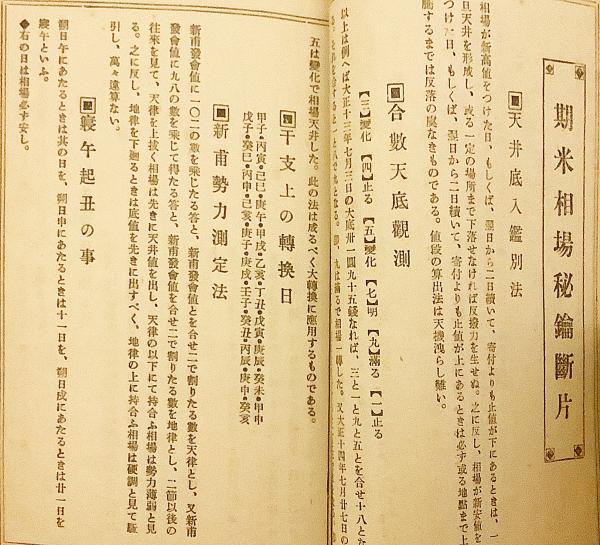 期米相場秘鑰斷片
天井底入鑑別法
相場が新高値をつけた日、もしくは、翌日から二日續いて、寄付よりも止値が下にあるときは、一
旦天井を形成し、或る一定の場所まで下落せなければ反撥力を生せぬ。之に反し、相場が新安値を
つけた日、もしくは、翌日から二日續いて、寄付よりも止値が上にあるときは必す或る地點まで上
騰するまでは反落の虞なきものである。値段の算出法は天機洩らし難い。
合數天底觀測
【三】變化 【四】止る 【五】變化 【七】明 【九】滿る 【一】止る
以上は例へば大正十三年七月三日の大底卅一四九五錢なれば、三と一と九と五とを合せ十八とな
九は滿るで相場一轉した。又大正十四年七月廿七日の
五は變化で相場天井した。此の法は成るべく大轉換に應用するものである。
干支上の轉換日
甲子・丙寅・己巳・庚午・甲戌・乙亥・丁丑・戊寅・庚辰・癸未・甲申
戊子・癸巳・丙申・己亥・庚子・庚戌・壬子・癸丑・丙辰・庚申・癸亥
新甫勢力測定法
新甫發會値に一〇二の數を乘じたる答と、新甫發會値とを合せ二で割りたる數を天律とし、又新甫
發會値に九八の數を乘じて得たる答と、新甫發會値を合せ二で割りたる數を地律とし、二節以後の
往來を見て、天律を上拔く相場は先きに天井値を出し、天律の以下にて持合ふ相場は勢力薄弱と見
る。之に反し、地律を下廻るときは底値を先きに出すべく、地律の上に持合ふ相場は硬調と見て駈
引し、萬々違算ない。
寢午起丑の事
朔日午にあたるときは其の日を、朔日申にあたるときは十一日を、朔日戌にあたるときは廿一日を
寢午といふ。
◆右の日は相場必す安し。